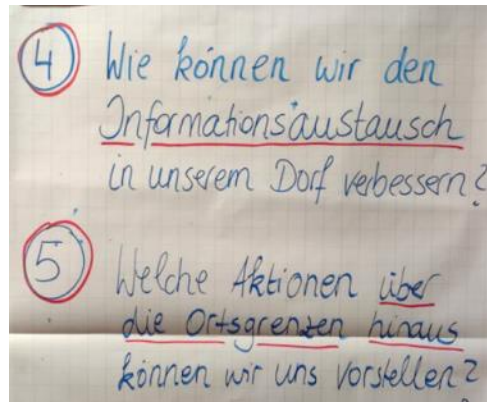 4 Wie können wir den
Informationsaustausch
in unserem Dorf verbessern?
5 Welche Aktionen über
die Ortsgrenzen hinaus
können wir uns vorstellen?